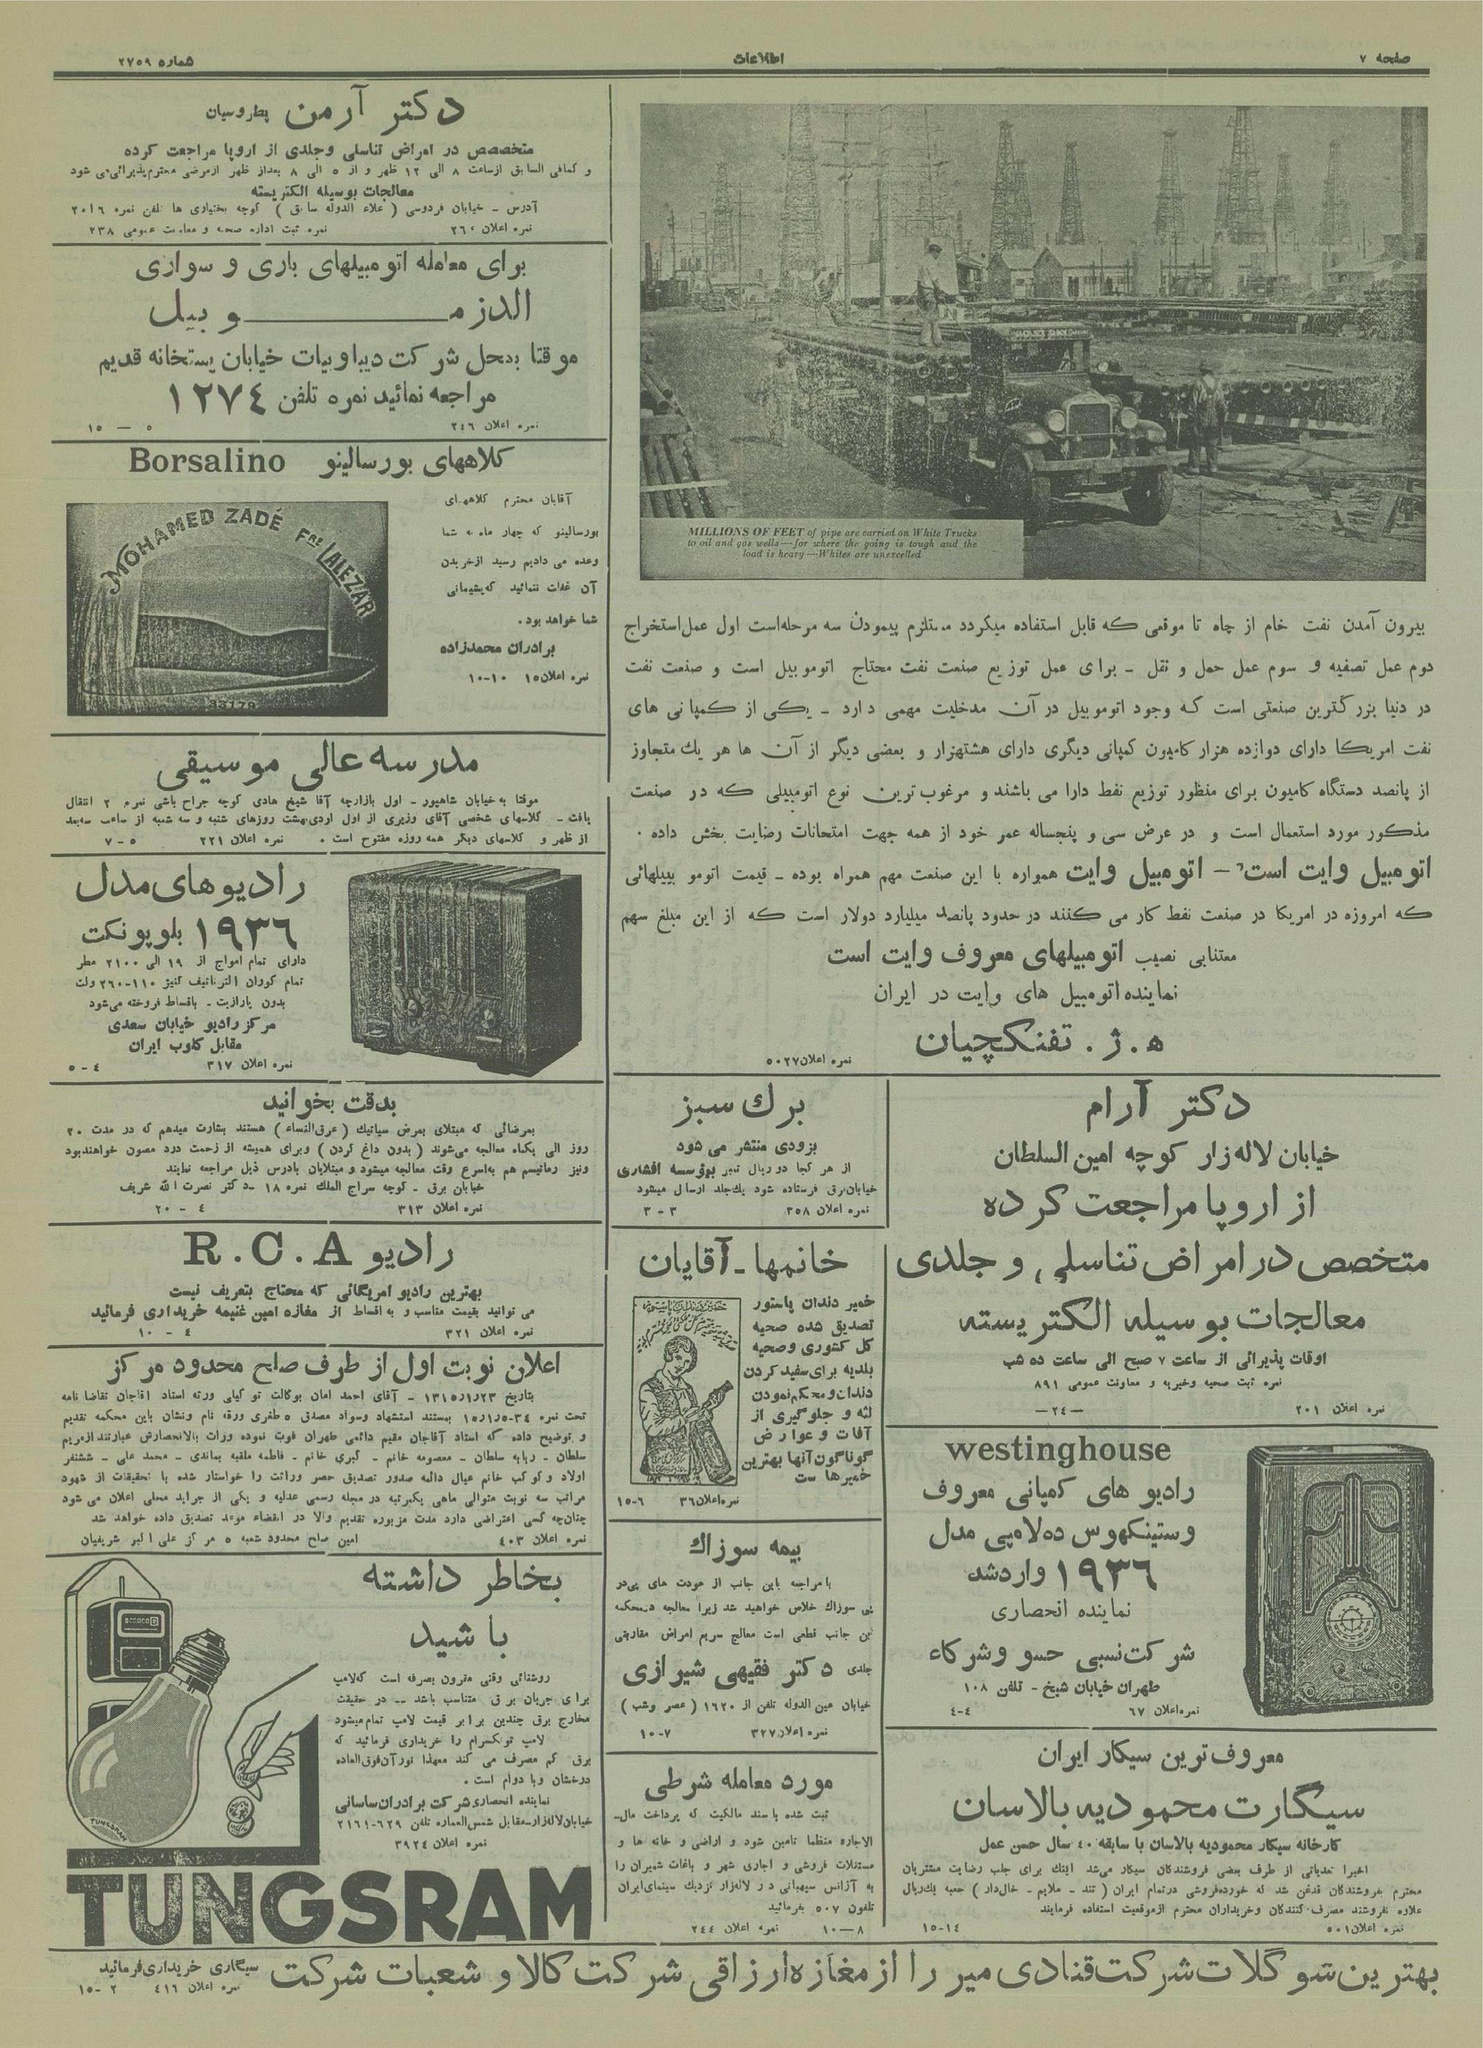 صفحه ۷
اطلاعات
شماره ۲۷۵۹
MILLIONS OF FEET of pipe are carried on White Trucks
to oil and gas wells—for where the going is tough and the
load is heavy—Whites are unexcelled
بیرون آمدن نفت خام از چاه تا موقعی که قابل استفاده میگردد مستلزم پیمودن سه مرحله‌است اول عمل‌استخراج
دوم عمل تصفیه و سوم عمل حمل و نقل – برای عمل توزیع صنعت نفت محتاج اتوموبیل است و صنعت نفت
در دنیا بزرگترین صنعتی است که وجود اتوموبیل در آن مدخلیت مهمی دارد – یکی از کمپانی های
نفت امریکا دارای دوازده هزار کامیون کمپانی دیگری دارای هشتهزار و بعضی دیگر از آن ها هر یك متجاوز
از پانصد دستگاه کامیون برای منظور توزیع نفط دارا می باشند و مرغوب ترین نوع اتومبیلی که در صنعت
مذکور مورد استعمال است و در عرض سی و پنجساله عمر خود از همه جهت امتحانات رضایت بخش داده .
اتومبیل وایت است – اتومبیل وایت همواره با این صنعت مهم همراه بوده – قیمت اتومو بیلهائی
که امروزه در امریکا در صنعت نفط کار می کنند در حدود پانصد میلیارد دولار است که از این مبلغ سهم
معتنابی نصیب اتومبیلهای معروف وایت است
نماینده اتومبیل های وایت در ایران
ه . ژ . تفنکچیان
نمره اعلان ۵۰۲۷
دکتر آرمن پطروسیان
متخصص در امراض تناسلی وجلدی از اروپا مراجعت کرده
و کمافی السابق ازساعت ۸ الی ۱۲ ظهر و از ۵ الی ۸ بعداز ظهر ازمرضی محترم‌پذیرائی‌می شود
معالجات بوسیله الکتریسته
آدرس – خیابان فردوسی ( علاء الدوله سابق ) کوچه بختیاری ها تلفن نمره ۲۰۱۶
نمره اعلان ۲۶۰ نمره ثبت اداره صحیه و معاونت عمومی ۲۳۸
برای معامله اتومبیلهای باری و سواری
الدزمــوبیل
موقتا بمحل شرکت دیباوبیات خیابان پستخانه قدیم
مراجعه نمائید نمره تلفن ۱۲۷۴
نمره اعلان ۲۴۶ ۵ – ۱۵
کلاههای بورسالینو Borsalino
MOHAMED ZADÉ FRE LALEZAR
33179
آقایان محترم کلاههای
بورسالینو که چهار ماه به شما
وعده می دادیم رسید ازخریدن
آن غفلت ننمائید که‌پشیمانی
شما خواهد بود .
برادران محمدزاده
نمره اعلان ۱۵ ۱۰–۱۰
مدرسه عالی موسیقی
موقتا به خیابان شاهپور – اول بازارچه آقا شیخ هادی کوچه جراح باشی نمره ۲ انتقال
یافت – کلاسهای شخصی آقای وزیری از اول اردی‌بهشت روزهای شنبه و سه شنبه از ساعت سه‌بعد
از ظهر و کلاسهای دیگر همه روزه مفتوح است . نمره اعلان ۲۲۱ ۵ – ۷
رادیوهای مدل
۱۹۳۶ بلوپونکت
دارای تمام امواج از ۱۹ الی ۲۱۰۰ مطر
تمام کوران الترناتیف کنیز ۱۱۰–۲۶۰ ولت
بدون پارازیت – باقساط فروخته می‌شود
مرکز رادیو خیابان سعدی
مقابل کلوب ایران
نمره اعلان ۳۱۷ ۴ – ۵
بدقت بخوانید
بمرضائی که مبتلای بمرض سیاتیك (عرق‌النساء) هستند بشارت میدهم که در مدت ۲۰
روز الی یکماه معالجه می‌شوند (بدون داغ کردن) وبرای همیشه از زحمت درد مصون خواهندبود
ونیز رماتیسم هم به‌اسرع وقت معالجه میشود و مبتلایان بادرس ذیل مراجعه نمایند
خیابان برق – کوچه سراج الملك نمره ۱۸ – دکتر نصرت الله شریف
نمره اعلان ۳۱۳ ۴ – ۲۰
رادیو R.C.A
بهترین رادیو امریکائی که محتاج بتعریف نیست
می توانید بقیمت مناسب و به اقساط از مغازه امین غنیمه خریداری فرمائید
نمره اعلان ۳۲۱ ۴ – ۱۰
اعلان نوبت اول از طرف صلح محدود مرکز
بتاریخ ۱۳۱۵/۱/۲۳ – آقای احمد امان بوکالت تو کیلی ورثه استاد آقاجان تقاضا نامه
تحت نمره ۱۵/۱/۵–۳۴ بمستند استشهاد وسواد مصدق ۵ طغری ورقه نام ونشان باین محکمه تقدیم
و توضیح داده که استاد آقاجان مقیم دائمی طهران فوت نموده وراث بالانحصارش عبارتند ازمریم
سلطان – ربابه سلطان – معصومه خانم – کبری خانم – فاطمه ملقبه بماندی – محمد علی – ششنفر
اولاد و کوکب خانم عیال دائمه صدور تصدیق حصر وراثت را خواستار شده با تحقیقات از شهود
مراتب سه نوبت متوالی ماهی یکمرتبه در مجله رسمی عدلیه و یکی از جراید محلی اعلان می شود
چنان‌چه کسی اعتراضی دارد مدت مزبوره تقدیم والا در انقضاء موعد تصدیق داده خواهد شد
نمره اعلان ۴۰۳ امین صلح محدود شعبه ۵ مرکز علی اکبر شریفیان
بخاطر داشته
باشید
روشنائی وقتی مقرون بصرفه است که‌لامپ
برای جریان برق متناسب باشد — در حقیقت
مخارج برق چندین برابر قیمت لامپ تمام میشود
لامپ تونگسرام را خریداری فرمائید که
برق کم مصرف می کند معهذا نور آن فوق‌العاده
درخشان وبا دوام است .
نماینده انحصاری شرکت برادران‌ساسانی
خیابان‌لاله‌زار–مقابل شمس‌العماره تلفن ۶۲۹–۲۱۶۱
نمره اعلان ۳۹۲۴
TUNGSRAM
TUNGSRAM
برك سبز
بزودی منتشر می شود
از هر کجا دو ریال تمبر بمؤسسه افشاری
خیابان‌برق فرستاده شود یك‌جلد ارسال میشود
نمره اعلان ۳۵۸ ۳ – ۳
خانمها – آقایان
خمیر دندان پاستور
تصدیق شده صحیه
کل کشوری وصحیه
بلدیه برای سفید کردن
دندان‌ومحکم‌نمودن
لثه و جلوگیری از
آفات و عوارض
گوناگون‌آنها بهترین
خمیرها ست
نمره‌اعلان ۳۶ ۶–۱۵
بیمه سوزاك
با مراجعه باین جانب از عودت های پی‌در
پی سوزاك خلاص خواهید شد زیرا معالجه درمحکمه
این جانب قطعی است معالج سریع امراض مقاربتی
جلدی دکتر فقیهی شیرازی
خیابان عین الدوله تلفن از ۱۶۲۰ ( عصر وشب )
نمره اعلان ۳۲۷ ۷–۱۰
مورد معامله شرطی
ثبت شده با سند مالکیت که پرداخت مال–
الاجاره منظما تامین شود و اراضی و خانه ها و
مستغلات فروشی و اجاری شهر و باغات شمیران را
به آژانس سیهبانی در لاله‌زار نزدیك سینمای‌ایران
تلفون ۵۰۷ بفرمائید
نمره اعلان ۲۴۴ ۸—۱۰
دکتر آرام
خیابان لاله‌زار کوچه امین السلطان
از اروپا مراجعت کرده
متخصص در امراض تناسلی و جلدی
معالجات بوسیله الکتریسته
اوقات پذیرائی از ساعت ۷ صبح الی ساعت ده شب
نمره ثبت صحیه وخیریه و معاونت عمومی ۸۹۱
نمره اعلان ۲۰۱ —۲۴—
westinghouse
رادیو های کمپانی معروف
وستینکهوس ده‌لامپی مدل
۱۹۳۶ واردشد
نماینده انحصاری
شرکت‌نسبی حسو وشرکاء
طهران خیابان شیخ – تلفن ۱۰۸
نمره‌اعلان ۶۷ ۴–۴
معروف‌ترین سیکار ایران
سیگارت محمودیه بالاسان
کارخانه سیکار محمودیه بالاسان با سابقه ۴۰ سال حسن عمل
اخیرا تعدیاتی از طرف بعضی فروشندکان سیکار می‌شد اینك برای جلب رضایت مشتریان
محترم بفروشندکان قدغن شد که خورده‌فروشی درتمام ایران ( تند – ملایم – خال‌دار ) جعبه یك‌ریال
علاوه نفروشند مصرف‌کنندکان وخریداران محترم ازموقعیت استفاده فرمایند
نمره اعلان ۵۰۱ ۱۴–۱۵
بهترین‌شوگلات‌شرکت‌قنادی‌میر را از مغازه‌ارزاقی شرکت‌کالا و شعبات شرکت سیگاری خریداری‌فرمائید
نمره اعلان ۴۱۶ ۲–۱۵